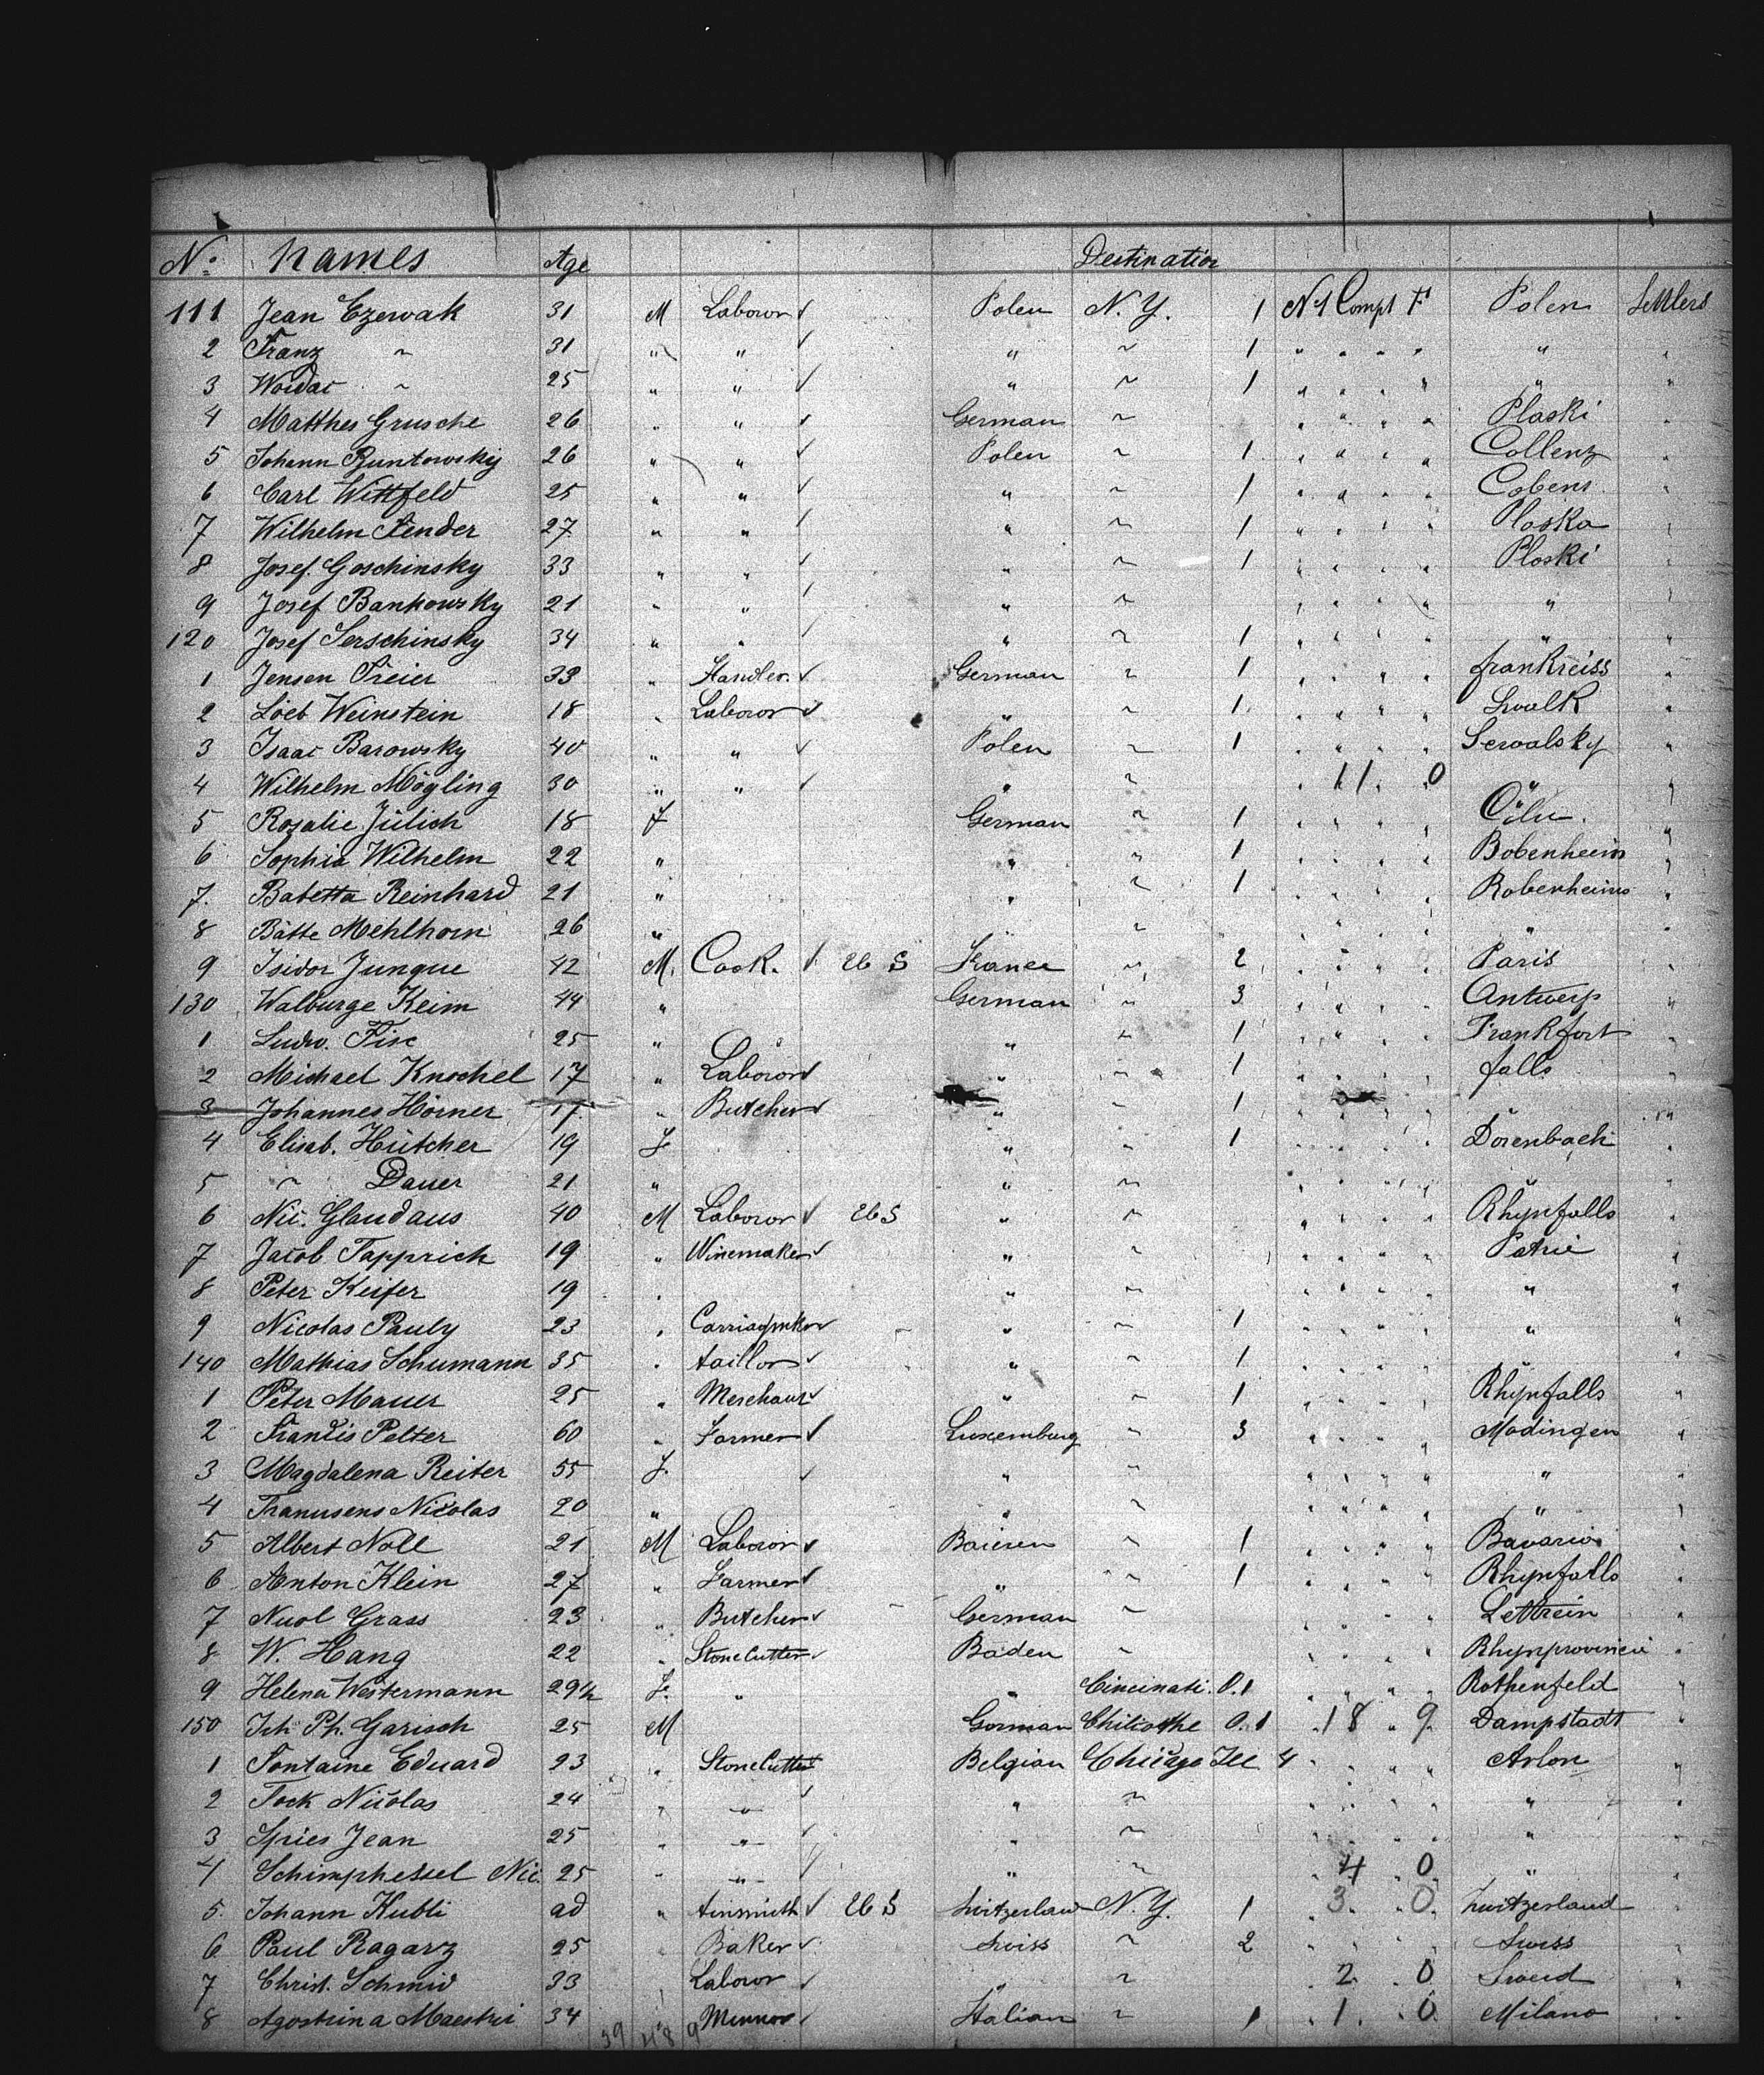 No. Names Age Destination
111 Jean Czerwak 31 M Laboror ✓ Polen N.Y. 1 No 1 Compt F Polen Settlers
2 Franz ~ 31 " " ✓ " ~ 1 " " " " " "
3 Woidac ~ 25 " " ✓ " ~ 1 " " " " " "
4 Matthes Grusche 26 " " ✓ German ~ " " " " Plaski "
5 Johann Buntowskij 26 " " ✓ Polen ~ 1 " " " " Collenz "
6 Carl Wittfeld 25 " " ✓ " ~ 1 " " " " Cobens "
7 Wilhelm Fender 27 " " ✓ " ~ 1 " " " " Ploska "
8 Josef Goschinsky 33 " " ✓ " ~ 1 " " " " Ploski "
9 Josef Bankowsky 21 " " ✓ " ~ " " " " " "
120 Josef Serschinsky 34 " " ✓ " ~ 1 " " " " " "
1 Jensen Freier 33 " Handler ✓ German ~ 1 " " " " frankreiss "
2 Löeb Weinstein 18 " Laboror ✓ " ~ 1 " " " " Swalk "
3 Isaac Barowsky 40 " " ✓ Polen ~ 1 " " " " Serwalsky "
4 Wilhelm Mögling 30 " " ✓ " ~ " 11 " 0 " "
5 Rosalie Jülich 18 F German ~ 1 " " " " Cöln "
6 Sophia Wilhelm 22 " " ~ 1 " " " " Bobenheim "
7 Babetta Reinhard 21 " " ~ 1 " " " " Robenheims "
8 Bätte Mehlhorn 26 " " ~ " " " " " "
9 Isidor Junque 42 M. Cook. ✓ U S France ~ 2 " " " " Paris "
130 Walburge Keim 44 " German ~ 3 " " " " Antwerp "
1 Ludw. Fise 25 " " ~ 1 " " " " Frankfort "
2 Michael Knochel 17 " Laboror ✓ " ~ 1 " " " " falls "
3 Johannes Hörner 17 " Butcher ✓ " ~ 1 " " " " " "
4 Elisab. Hütcher 19 F " ~ 1 " " " " Dorenbach "
5 ~ Dauer 21 " " ~ " " " " " "
6 Nic. Glaudaus 40 M Laboror ✓ U S " ~ " " " " Rhynfalls "
7 Jacob Tapprich 19 " Winemaker ✓ " ~ " " " " "
8 Peter Keifer 19 " " ~ " " " " " "
9 Nicolas Pauly 23 " Carriagmker ✓ " ~ 1 " " " " " "
140 Mathias Schumann 35 " taillor ✓ " ~ 1 " " " " " "
1 Peter Mauer 25 " Merchant ✓ " ~ 1 " " " " Rhynfalls "
2 Francis Pelter 60 " Farmer ✓ Luxemburg ~ 3 " " " " Modingen "
3 Magdalena Reiter 55 F. ✓ " ~ " " " " " "
4 Tranusens Nicolas 20 " " ~ " " " " " "
5 Albert Noll 21 M Laboror ✓ Baiern ~ 1 " " " " Bavaria "
6 Anton Klein 27 " Farmer ✓ " ~ 1 " " " " Rhynfalls "
7 Nuol Grass 23 " Butcher ✓ German ~ " " " " Lettrein "
8 W. Hang 22 " StoneCutter ✓ Baden ~ " " " " Rhynprovincie "
9 Helena Westermann 29½ F. " " Cincinati. O. 1 " " " " Rothenfeld "
150 Joh Ph. Garisch 25 M German Chilicothe O. 1 " 18 " 9 Dampstadt "
1 Fontaine Eduard 23 " StoneCutter Belgian Chicago Ill 4 " " " " Arlon "
2 Fock Nicolas 24 " " ✓ " ~ " " " " " "
3 Spries Jean 25 " " ✓ " ~ " " " " " "
4 Schimphessel Nic. 25 " " ✓ " ~ " 4 " 0 " "
5 Johann Kubli ad " tinsmith ✓ U S Switzerland N.Y. 1 " 3 " 0 Switzerland "
6 Paul Ragarz 25 " Baker ✓ Swiss ~ 2 " " " " Swiss "
7 Christ. Schmid 33 " Laboror ✓ " ~ " 2 " 0 "
8 Agostina Maestri 34 " Minnor ✓ Italian ~ 1 " 1 " 0 Milano "
39 48 9